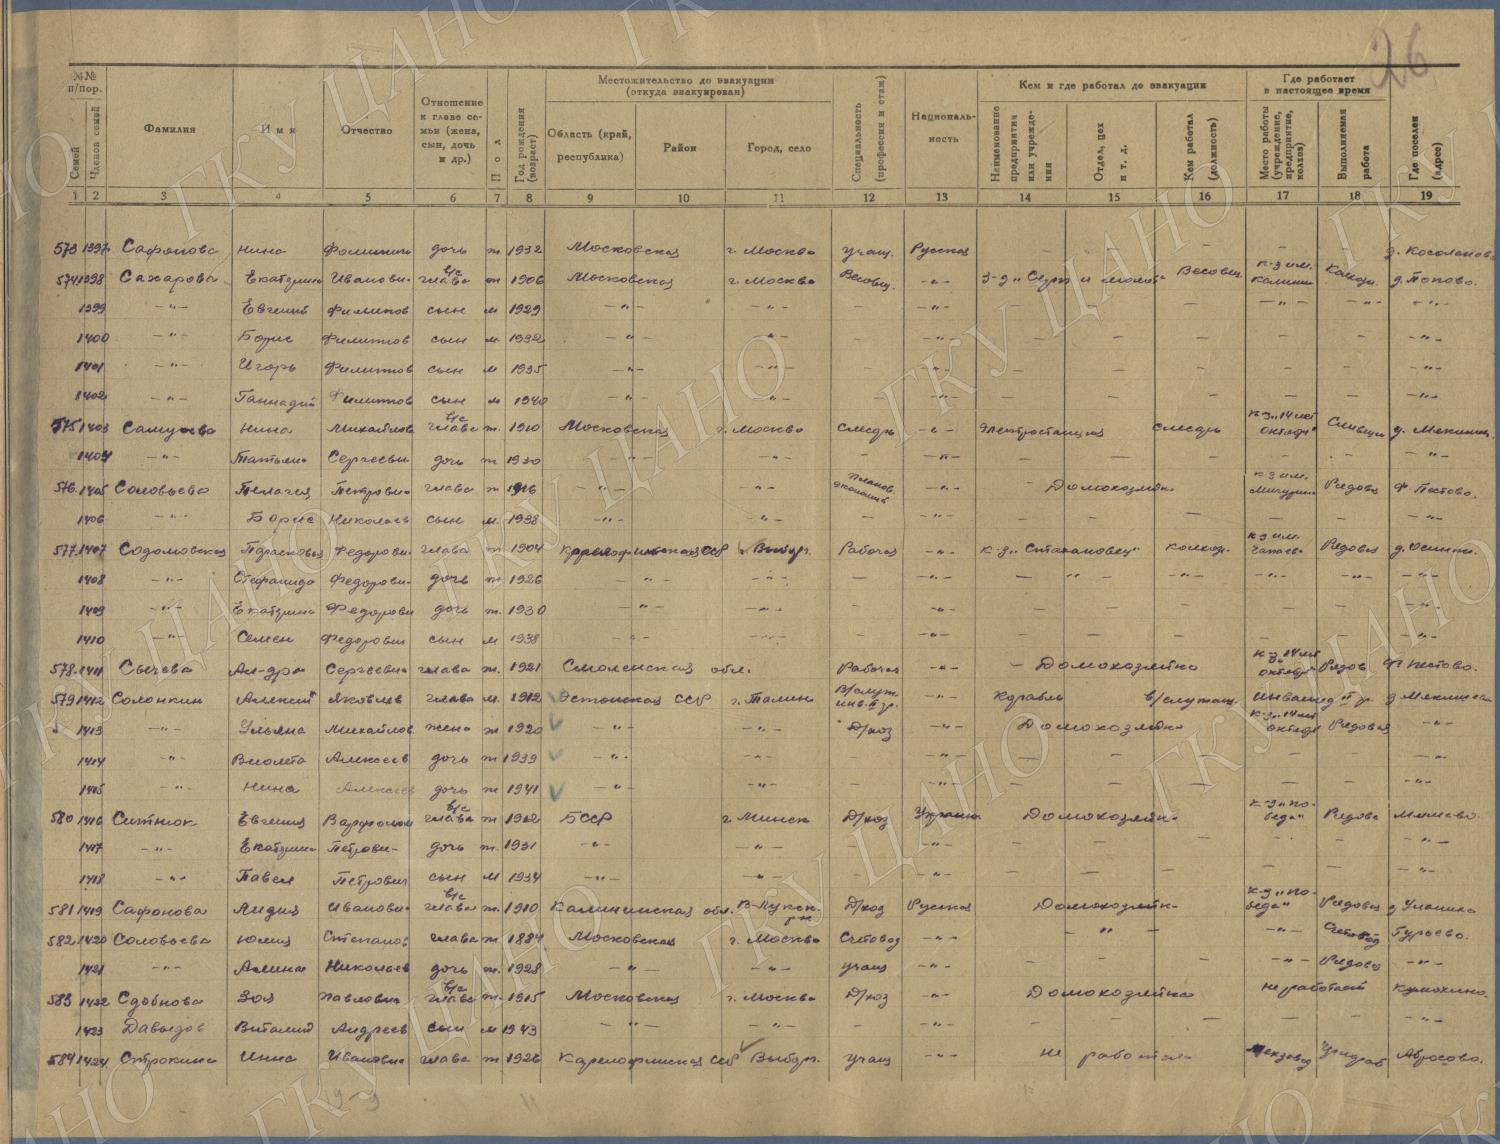 26
№№ п/пор. Фамилия Имя Отчество Отношение к главе семьи (жена, сын, дочь и др.) Пол Год рождения (возраст) Местожительство до эвакуации (откуда эвакуирован) Специальность (профессия и стаж) Националь-ность Кем и где работал до эвакуации Где работает в настоящее время Где поселен (адрес)
Семей Членов семей Область (край, республика) Район Город, село Наименование предприятия или учреждения Отдел, цех и т. д. Кем работал (должность) Место работы (учреждение, предприятие, колхоз) Выполняемая работа
1 2 3 4 5 6 7 8 9 10 11 12 13 14 15 16 17 18 19
573 1397 Сафонова Нина дочь ж 1932 Московская г. Москва учащ. Русская - - - - - д.
574 1398 Сахарова Екатерина Иванови- глава в/с ж 1906 Московская г. Москва Весовщ. -"- З-д "Серп и молот" Весовщ. к-з им. Калинин д. Попово.
1399 -"- Евгений Филипов сын м 1929 -"- -"- - -"- - - - -"- -"- -"-
1400 -"- Борис Филиппов сын м. 1932 -"- -"- - -"- - - - - - -"-
1401 -"- Игорь Филиппов сын м 1935 -"- -"- - -"- - - - - - -"-
1402 -"- Геннадий Филиппов сын м 1940 -"- -"- - -"- - - - - - -"-
575 1403 Нина Михайлов глава в/с ж. 1910 Московская г. Москва Слесарь -"- Электростанция слесарь к-з "14 лет октябр" д.
1404 -"- Татьяна Сергеевн дочь ж 1930 -"- -"- - -"- - - - - - -"-
576 1405 Соловьева Пелагея Петровна глава ж 1916 -"- -"- Планов. экономист -"- Домохозяйк к-з им. Мичурина Рядовая Ф. Пестово.
1406 -"- Борис Николаев сын м. 1938 -"- -"- - -"- - - - - - -"-
577 1407 Содомовская Парасковья Федорови- глава ж 1904 Карелофинская ССР Выборг. Рабочая -"- к-з "Стахановец" колхоз. к-з им. Чапаева Рядовая д.
1408 -"- Стефанида Федорови- дочь ж 1926 -"- -"- - -"- - -"- - -"- -"- -"-
1409 -"- Екатерина Федорови дочь ж. 1930 -"- -"- - -"- - - - - - -"-
1410 -"- Семен Федорович сын м 1938 -"- -"- - -"- - - - - - -"-
578 1411 Сычева Ал-дра Сергеевна глава ж. 1921 Смоленская обл. Рабочая -"- Домохозяйка к-з "14 лет октябр" Рядов Ф Пестово.
579 1412 Солонкин Алексей Яковлев глава м. 1912 Эстонская ССР г. Талин В/служ инв. II гр. -"- Корабль в/служащ. Инвалид II гр.
1413 -"- Ульяна Михайлов жена ж 1920 -"- -"- Д/хоз -"- Домохозяйка к-з "14 лет октябр Рядовая -"-
1414 -"- Виолета Алексеев дочь ж 1939 -"- -"- - -"- - - - - - -"-
1415 -"- Нина Алексеев дочь ж. 1941 -"- -"- - -"- - - - - - -"-
580 1416 Ситнюк Евгения глава в/с ж 1912 БССР г Минск Д/хоз Украинка Домохозяйка к-з "Победа" Рядова
1417 -"- Екатерина Петрови- дочь ж. 1931 -"- -"- - -"- - - - - - -"-
1418 -"- Павел Петрович сын м 1934 -"- -"- - -"- - - - - - -"-
581 1419 Сафонова Лидия Иванови- глава в/с ж. 1910 Калининская обл. В-Лукск. р-н Д/хоз Русская Домохозяйк- к-з "Победа" Рядовая
582 1420 Соловьева Юлия Степанов глава ж. 1884 Московская г. Москва Счетовод -"- - -"- - -"- Счетовод Гурьево.
1421 -"- Алина Николаев дочь ж. 1928 -"- -"- учащ -"- - - - -"- Рядовая -"-
583 1422 Сдобнова Зоя Павловна глава в/с ж. 1915 Московская г. Москва Д/хоз -"- Домохозяйка не работает
1423 Давыдов Виталий Андреев сын м 1943 -"- -"- - -"- - - - - - -"-
584 1424 Строкина Инна Ивановна глава ж 1926 Карелофинская ССР Выборг. учащ -"- не работала Абросово.
ГКУ ЦАНО